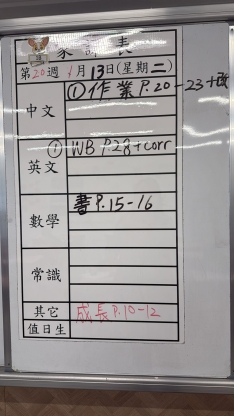 家課表
第20週 1月13日(星期二)
中文 ①作業 P.20-23+改
英文 ① WB P.28+corr
數學 書P.15-16
常識
其它 成長 P.10-12
值日生